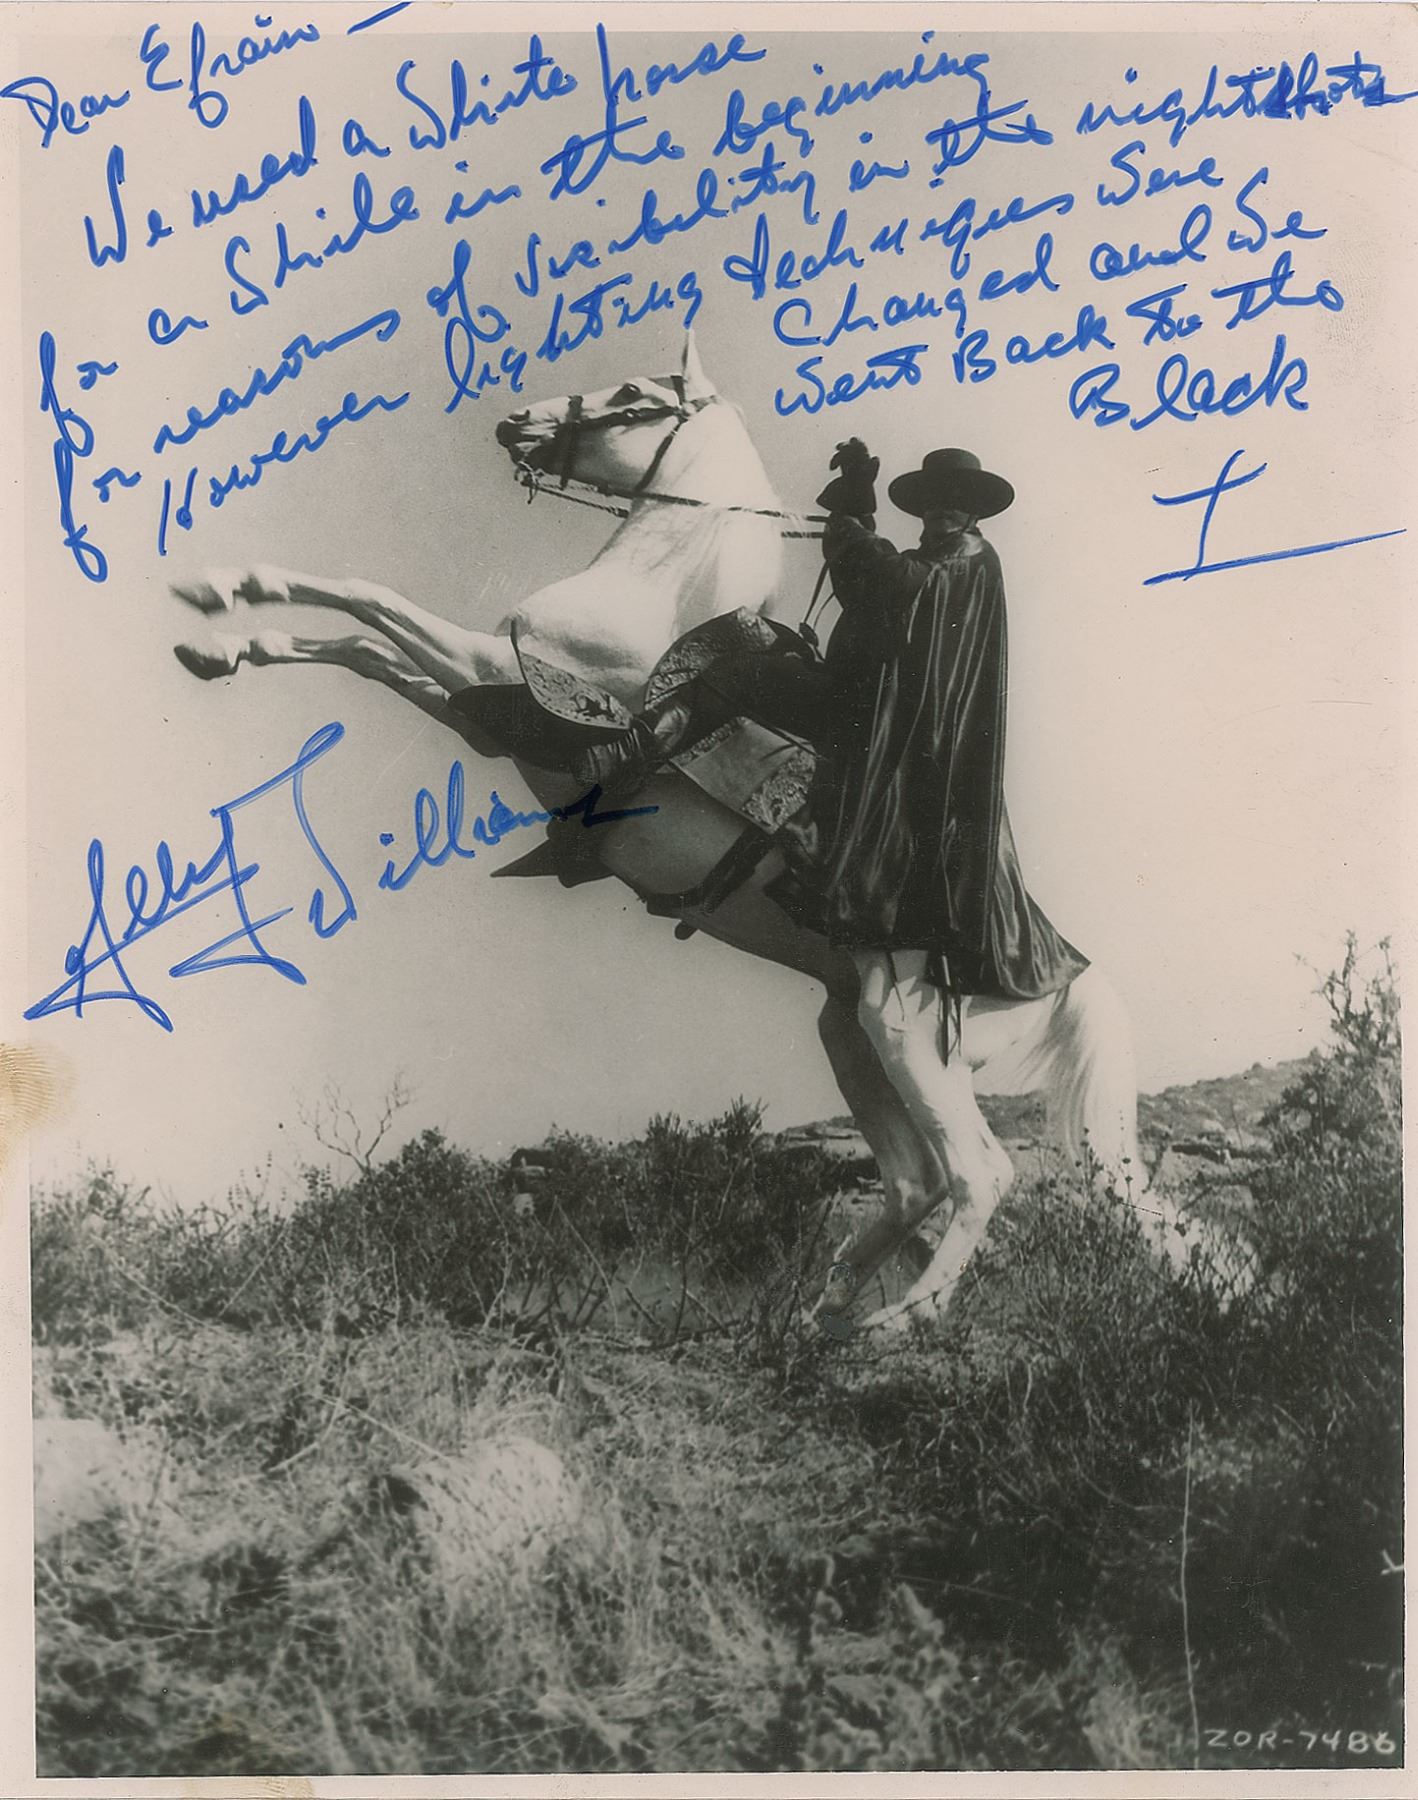 Dear Efrain —
We used a White horse
for a While in the beginning
for reasons of visibility in the night shots
However lighting techniques were
Changed and We
went Back to the
Black
Williams
ZOR-7486